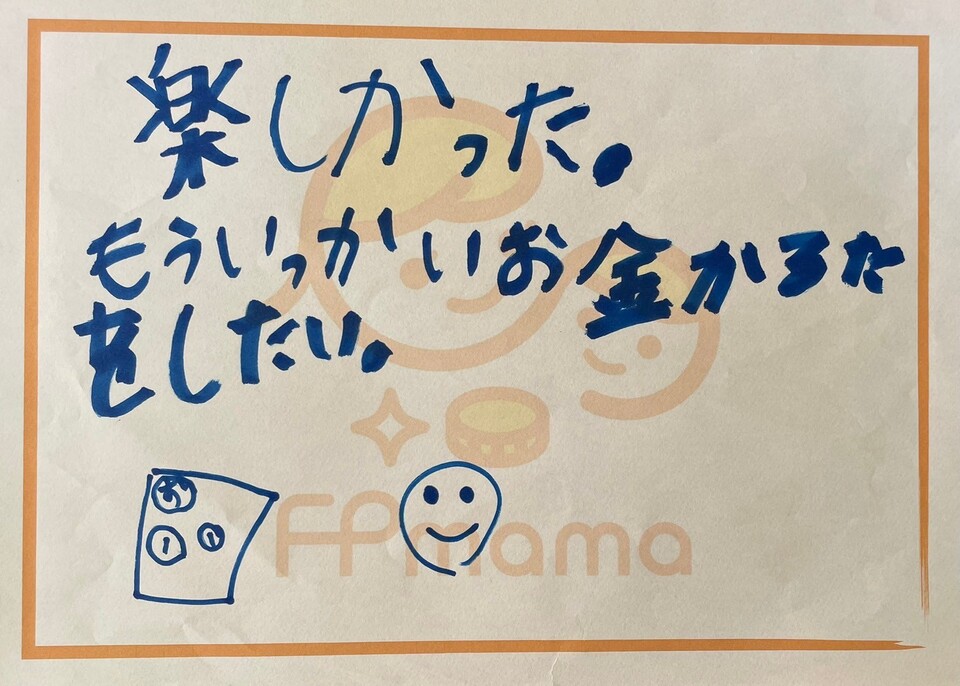 楽しかった。
もういっかいお金かるた
をしたい。
お
1 1
FPmama